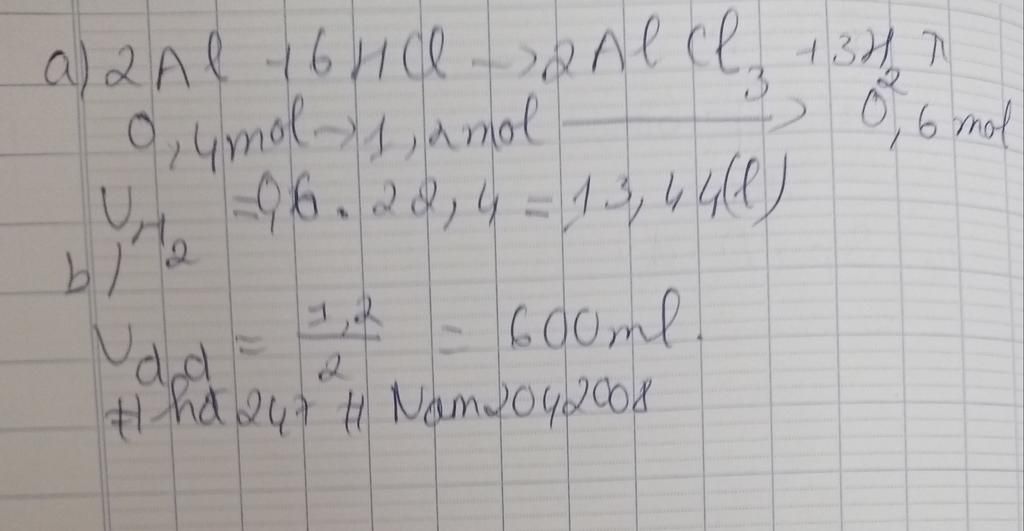 a) 2Al + 6HCl -> 2AlCl3 + 3H2 ↑
0,4mol -> 1,2mol -> 0,6 mol
VH2 = 0,6 . 22,4 = 13,44(l)
b)
Vdd = 1,2/2 = 600ml.
# hd 247 # Nam2042008